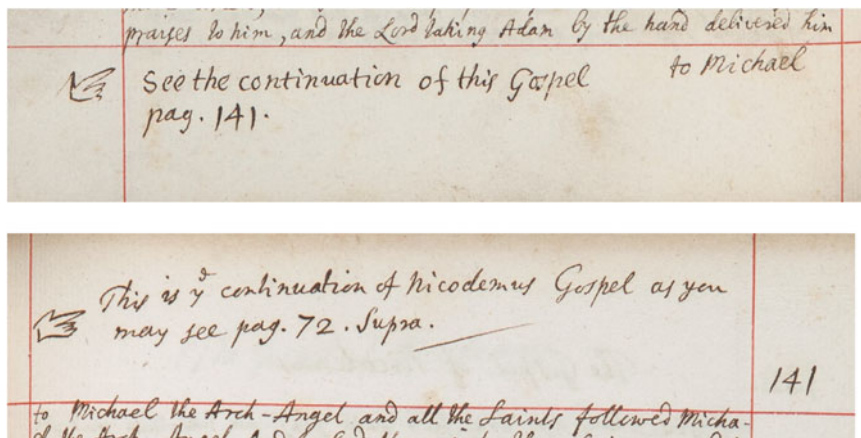 praises to him, and the Lord taking Adam by the hand delivered him
to Michael
See the continuation of this Gospel
pag. 141.
This is yᵉ continuation of Nicodemus Gospel as you
may see pag. 72. Supra.
141
to Michael the Arch-Angel and all the Saints followed Micha-